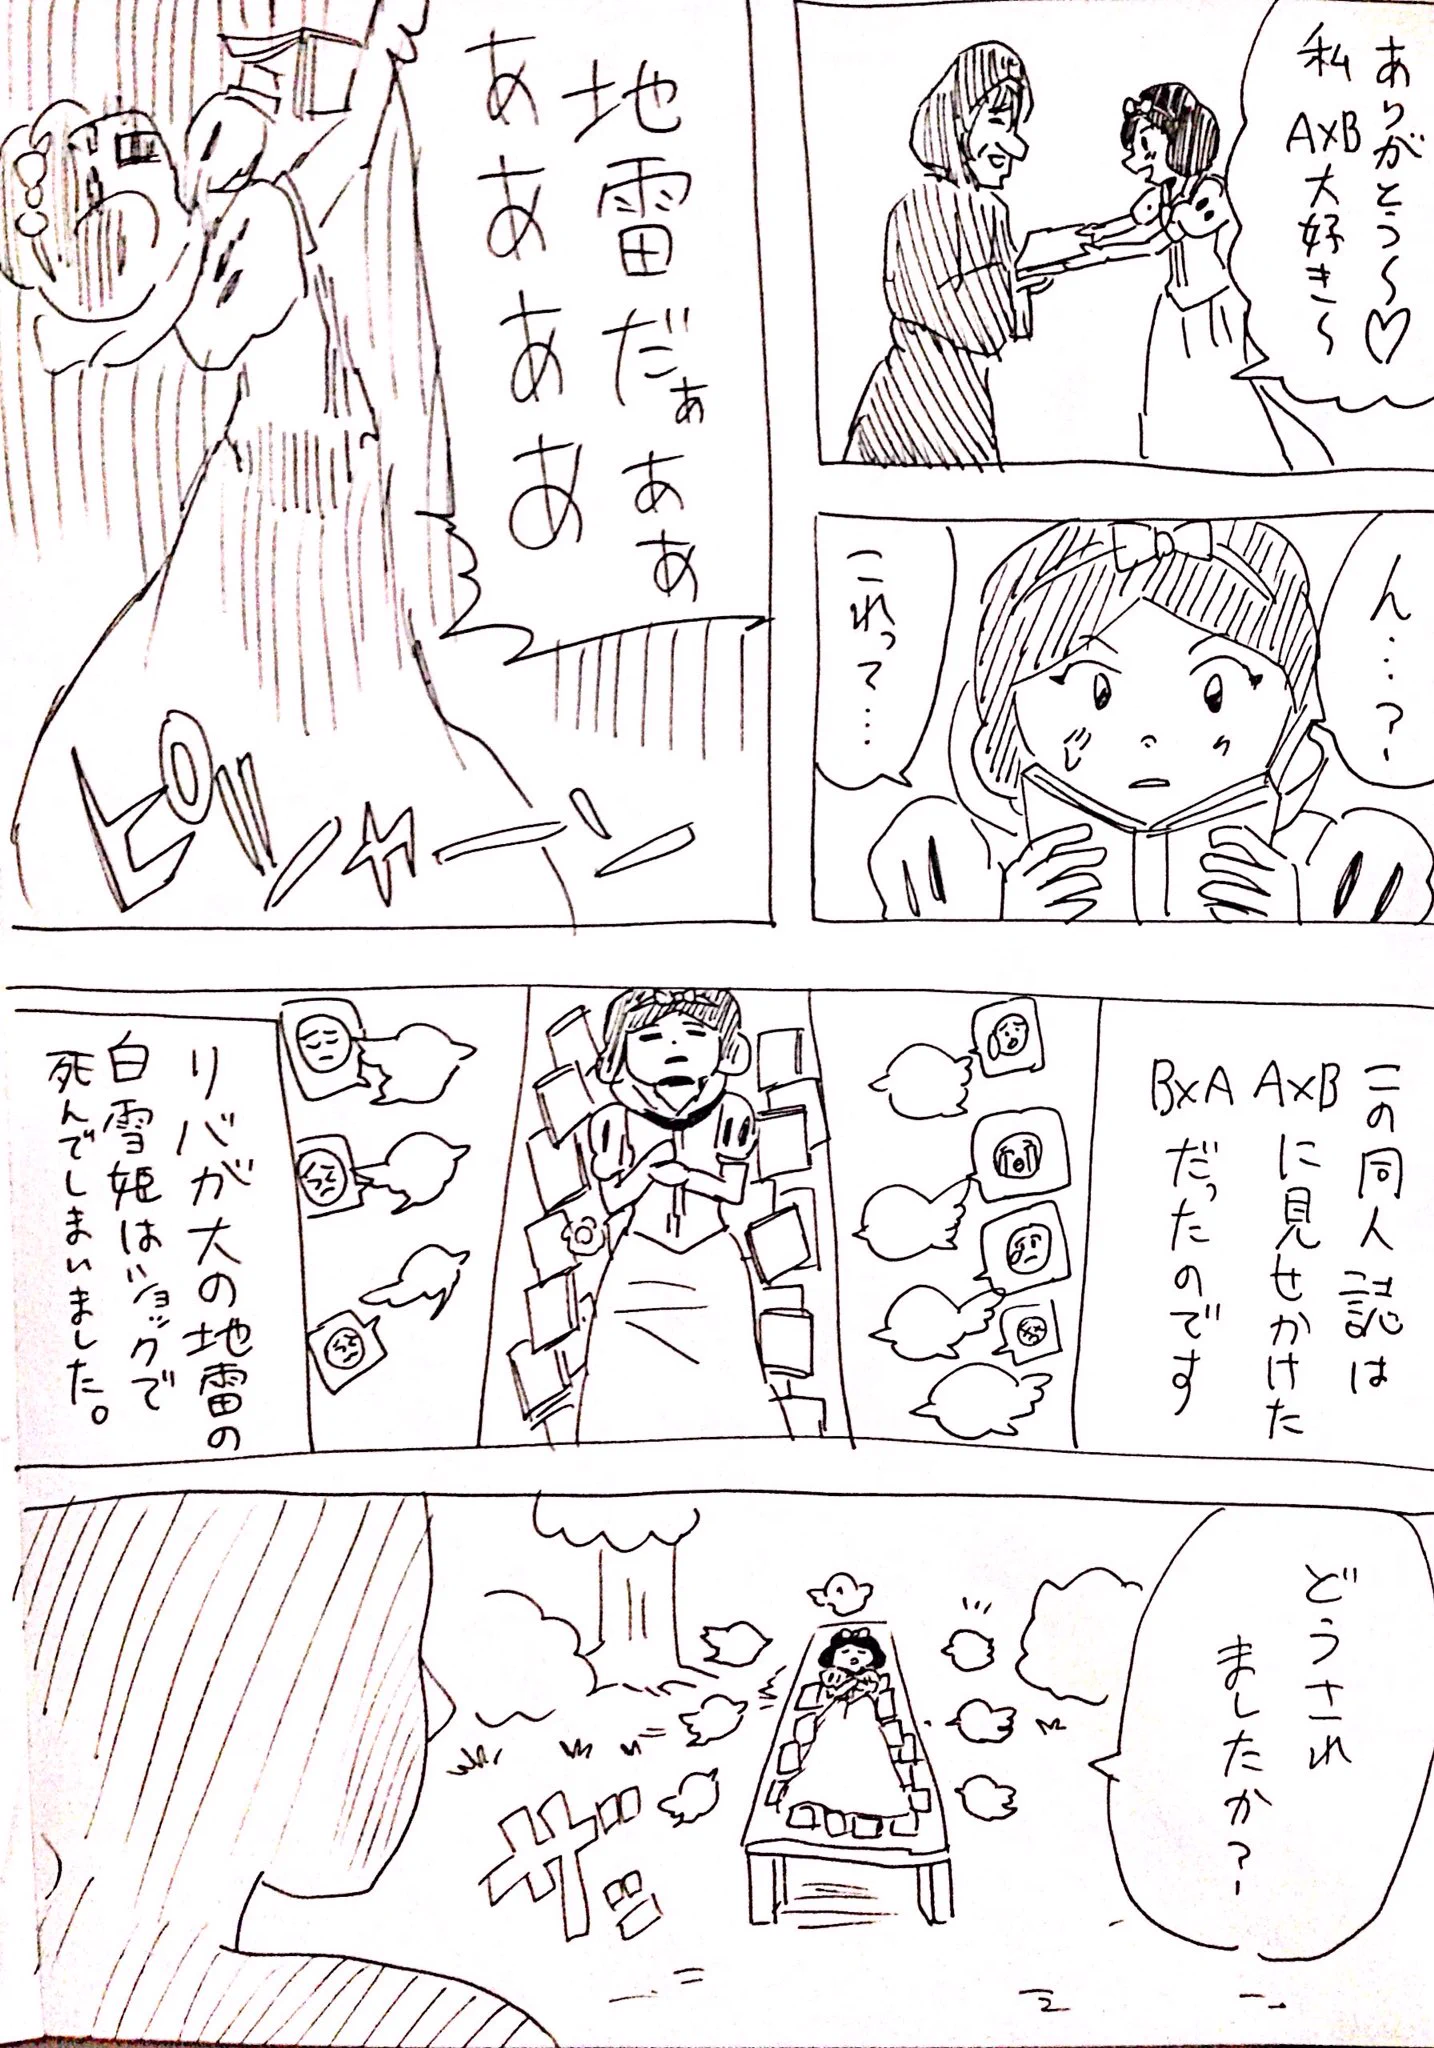 ありがとう〜♡
私
A×B
大好き〜
ん…?
これって…
地雷だぁああ
ああああ
ピシャーン
この同人誌は
A×Bに見せかけた
B×Aだったのです
リバが大の地雷の
白雪姫はショックで
死んでしまいました。
どうされ
ましたか?
ザッ